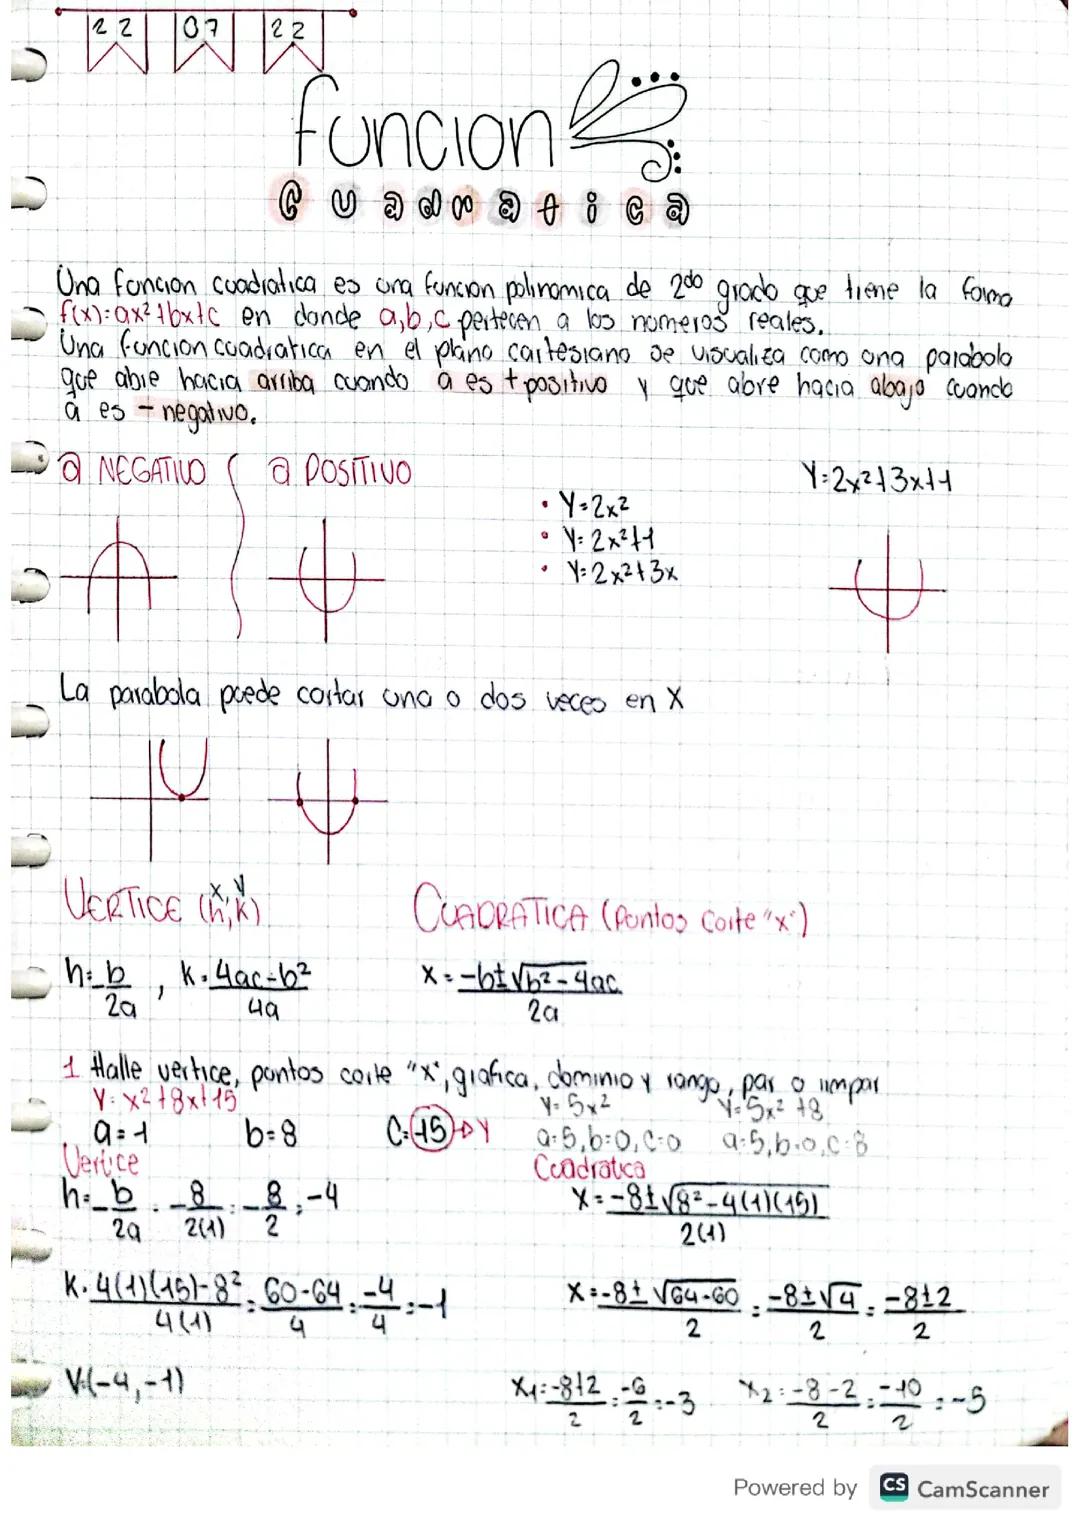 22 07 22
funcion
cuadratica
Una funcion cuadratica es una funcion polinomica de 2do grado que tiene la forma
f(x)=ax²+bx+c en donde a,b,c pertecen a los numeros reales.
Una funcion cuadratica en el plano cartesiano se visualiza como una parabola
que abre hacia arriba cuando a es + positivo y que abre hacia abajo cuando
a es - negativo.
a NEGATIVO a POSITIVO
• Y=2x²
• Y=2x²+1
• Y=2x²+3x
Y=2x²+3x+1
La parabola puede cortar una o dos veces en X
x, y
VERTICE (h,k)
CUADRATICA (Puntos corte "x")
h=-b/2a , k=4ac-b²/4a
x=-b±√b²-4ac/2a
1 Halle vertice, puntos corte "x", grafica, dominio y rango, par o impar
Y=x²+8x+15 y=5x² y=5x²+8
a=1 b=8 C=15→Y a=5,b=0,c=0 a=5,b=0,c=8
Vertice Cuadratica
h=-b/2a=-8/2(1)=-8/2=-4
x=-8±√8²-4(1)(15)/2(1)
k=4(1)(15)-8²/4(1)=60-64/4=-4/4=-1
x=-8±√64-60/2=-8±√4/2=-8±2/2
V=(-4,-1)
x1=-8+2/2=-6/2=-3 x2=-8-2/2=-10/2=-5
Powered by CS CamScanner